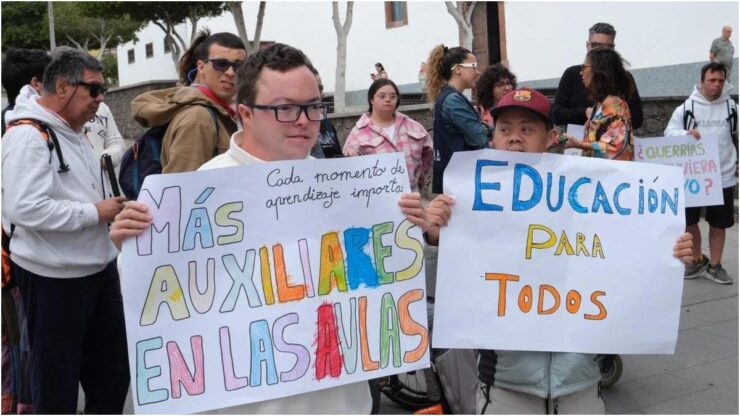 Cada momento de
aprendizaje importa
MÁS
AUXILIARES
EN LAS AULAS
EDUCACIÓN
PARA
TODOS
¿QUERRÍAS